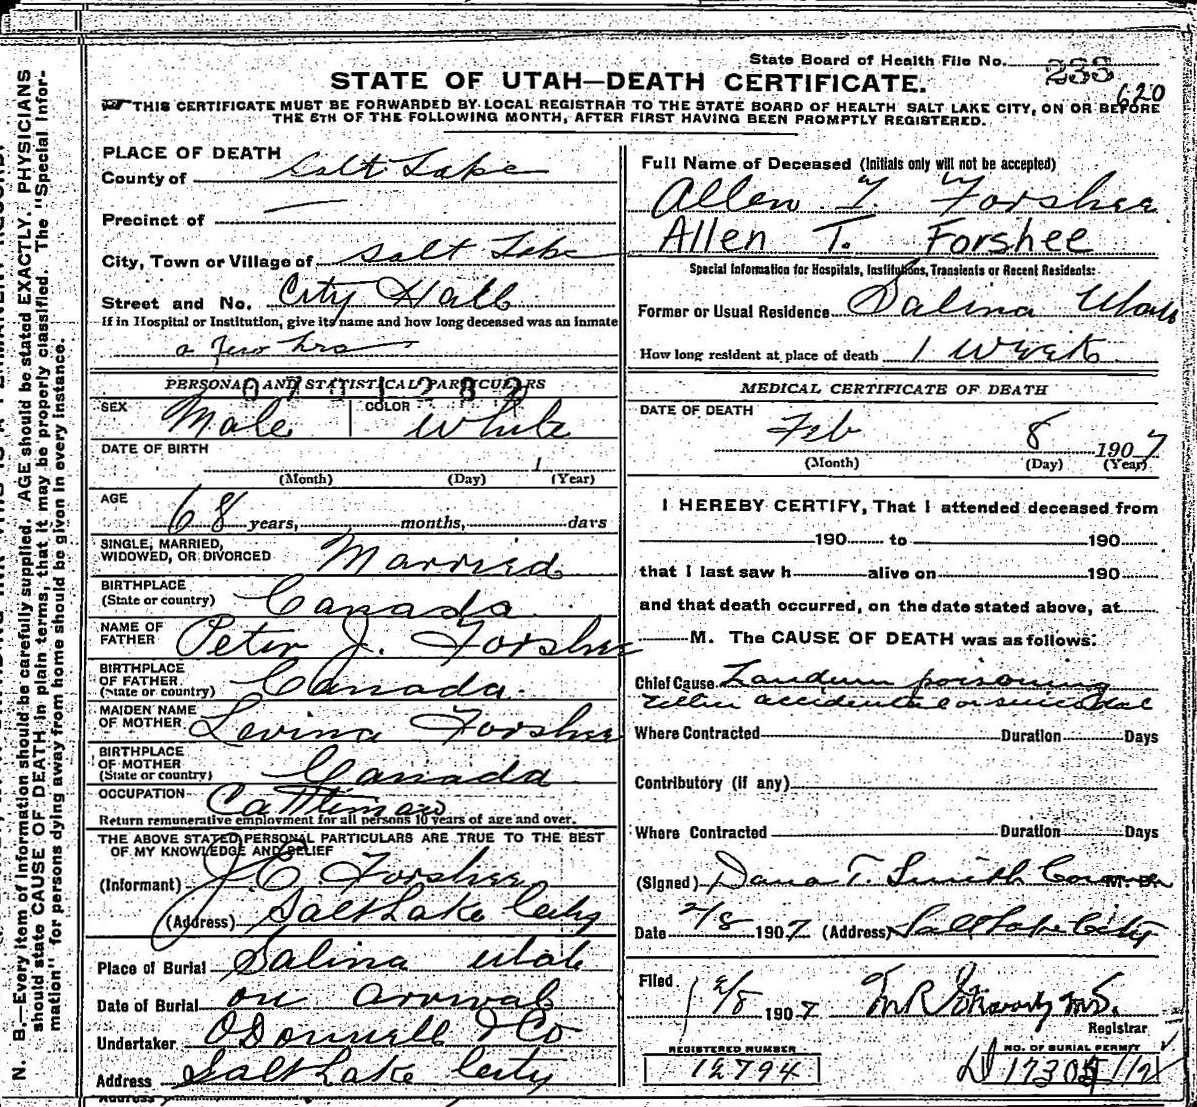 State Board of Health File No. 233
620
STATE OF UTAH—DEATH CERTIFICATE.
THIS CERTIFICATE MUST BE FORWARDED BY LOCAL REGISTRAR TO THE STATE BOARD OF HEALTH SALT LAKE CITY, ON OR BEFORE
THE 5TH OF THE FOLLOWING MONTH, AFTER FIRST HAVING BEEN PROMPTLY REGISTERED.
N. B.—Every item of information should be carefully supplied. AGE should be stated EXACTLY. PHYSICIANS
should state CAUSE OF DEATH in plain terms, that it may be properly classified. The "Special Infor-
mation" for persons dying away from home should be given in every instance.
PLACE OF DEATH
County of Salt Lake
Precinct of —
City, Town or Village of Salt Lake
Street and No. City Hall
If in Hospital or Institution, give its name and how long deceased was an inmate
a few hrs
PERSONAL AND STATISTICAL PARTICULARS
SEX Male COLOR White
DATE OF BIRTH
1
(Month) (Day) (Year)
AGE
68 years, months, days
SINGLE, MARRIED,
WIDOWED, OR DIVORCED Married
BIRTHPLACE
(State or country) Canada
NAME OF
FATHER Peter J. Forshee
BIRTHPLACE
OF FATHER
(State or country) Canada
MAIDEN NAME
OF MOTHER Levina Forshee
BIRTHPLACE
OF MOTHER
(State or country) Canada
OCCUPATION Cattleman
Return remunerative employment for all persons 10 years of age and over.
THE ABOVE STATED PERSONAL PARTICULARS ARE TRUE TO THE BEST
OF MY KNOWLEDGE AND BELIEF
(Informant) J. C. Forshee
(Address) Salt Lake City
Place of Burial Salina Utah
Date of Burial on arrival
Undertaker O'Donnell & Co
Address Salt Lake City
Full Name of Deceased (Initials only will not be accepted)
Allen T. Forshee
Allen T. Forshee
Special Information for Hospitals, Institutions, Transients or Recent Residents:
Former or Usual Residence Salina Utah
How long resident at place of death 1 week
MEDICAL CERTIFICATE OF DEATH
DATE OF DEATH
Feb 8 1907
(Month) (Day) (Year)
I HEREBY CERTIFY, That I attended deceased from
190 to 190
that I last saw h alive on 190
and that death occurred, on the date stated above, at
M. The CAUSE OF DEATH was as follows:
Chief Cause Laudnum poisoning
either accidental or suicidal
Where Contracted Duration Days
Contributory (if any)
Where Contracted Duration Days
(Signed) Dana T. Smith Coroner M. D.
Date 2/8 1907 (Address) Salt Lake City
Filed
2/8 1907 M.D.
Registrar
REGISTERED NUMBER
12794
NO. OF BURIAL PERMIT